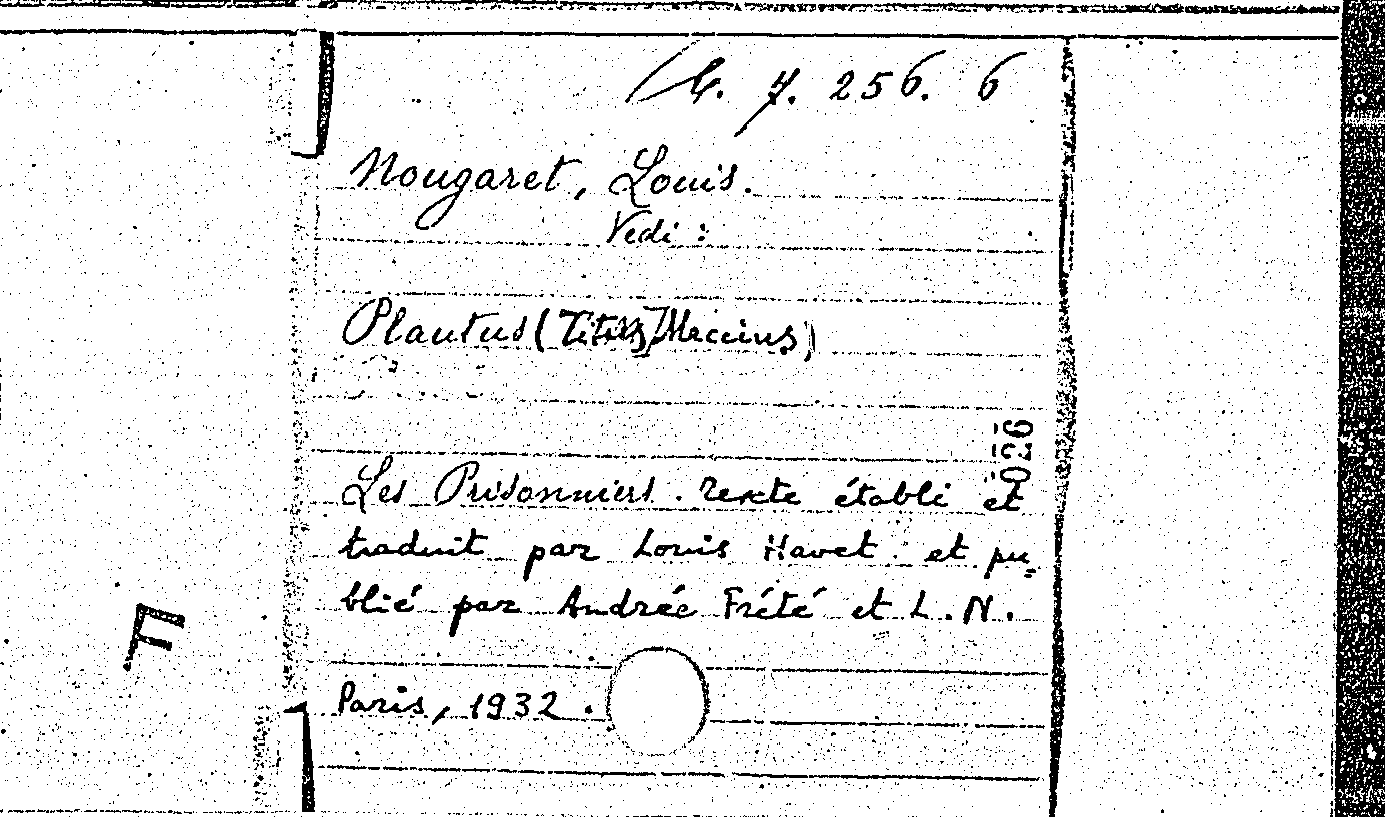 7. 256. 6
Nougaret, Louis.
Vedi:
Plautus (Titus Maccius)
026
Les Prisonniers. Texte établi et
traduit par Louis Havet et pu=
blié par Andrée Frété et L. N.
F
Paris, 1932.